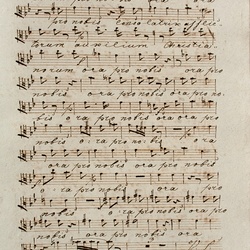 pro nobis Consolatrix afflic
torum auxilium Christia
norum ora pro nobis ora
nobis ora pro nobis ora pro no
bis ora pro nobis ora pro
nobis ora pro nobis
ora pro nobis ora pro nobis
ora pro nobis ora pro
nobis ora pro nobis ora
pro nobis ora pro nobis